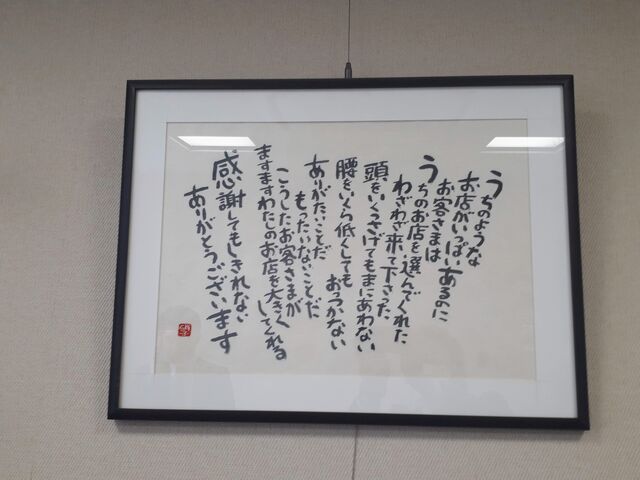 うちのような
お店がいっぱいあるのに
お客さまは
うちのお店を選んでくれた
わざわざ来て下さった
頭をいくらさげてもまにあわない
腰をいくら低くしても
おっつかない
ありがたいことだ
もったいないことだ
こうしたお客さまが
ますますわたしのお店を大きく
してくれる
感謝してもしきれない
ありがとうございます